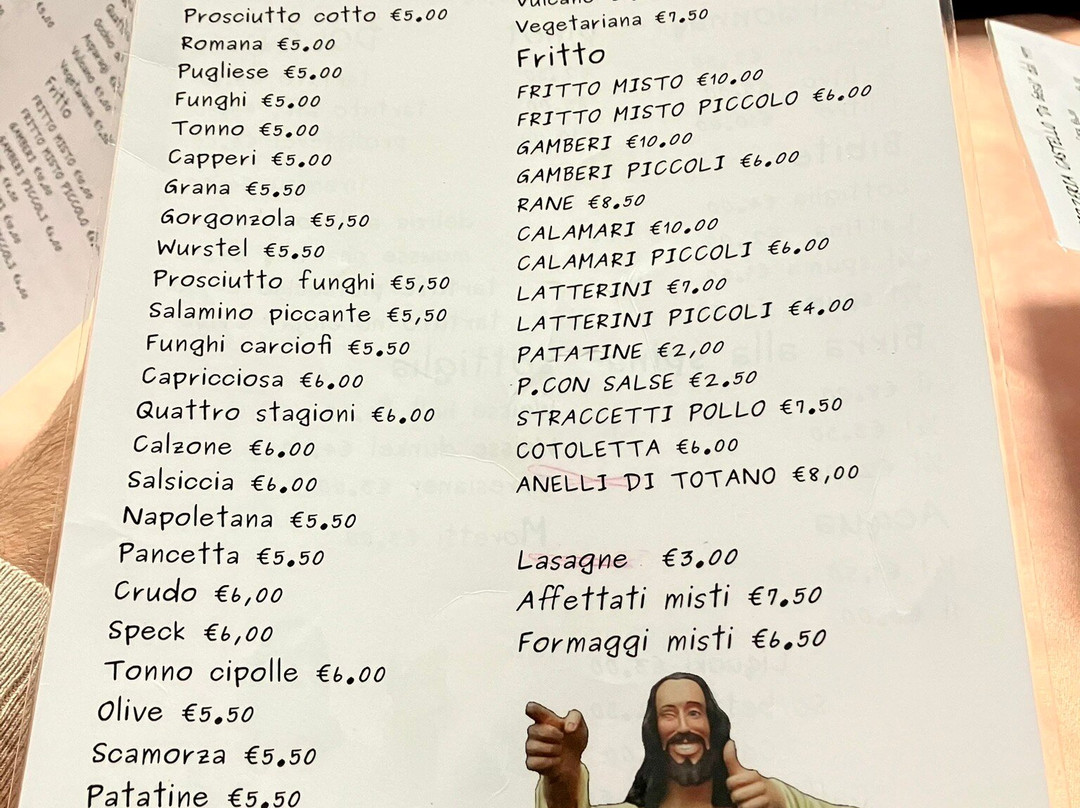 Prosciutto cotto €5.00
Romana €5.00
Pugliese €5.00
Funghi €5.00
Tonno €5.00
Capperi €5.00
Grana €5.50
Gorgonzola €5,50
Wurstel €5.50
Prosciutto funghi €5,50
Salamino piccante €5,50
Funghi carciofi €5.50
Capricciosa €6.00
Quattro stagioni €6.00
Calzone €6.00
Salsiccia €6.00
Napoletana €5.50
Pancetta €5.50
Crudo €6,00
Speck €6,00
Tonno cipolle €6.00
Olive €5.50
Scamorza €5.50
Patatine €5.50
Vegetariana €7.50
Fritto
FRITTO MISTO €10.00
FRITTO MISTO PICCOLO €6.00
GAMBERI €10.00
GAMBERI PICCOLI €6.00
RANE €8.50
CALAMARI €10.00
CALAMARI PICCOLI €6.00
LATTERINI €7.00
LATTERINI PICCOLI €4.00
PATATINE €2,00
P.CON SALSE €2.50
STRACCETTI POLLO €7.50
COTOLETTA €6.00
ANELLI DI TOTANO €8,00
Lasagne €3.00
Affettati misti €7.50
Formaggi misti €6.50